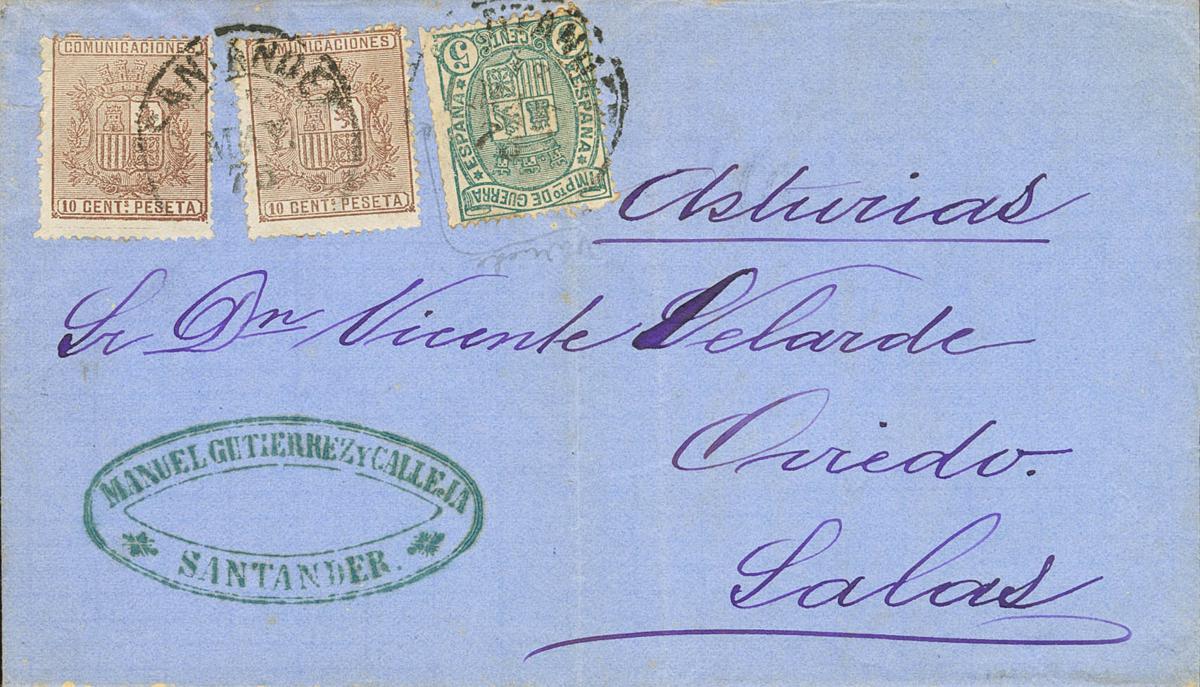 COMUNICACIONES
10 CENT.s PESETA
COMUNICACIONES
10 CENT.s PESETA
5 CENT.s
ESPAÑA ESPAÑA
IMP.to DE GUERRA
SANTANDER
MAY
Asturias
Sr Dn Vicente Velarde
Oviedo.
Salas
MANUEL GUTIERREZ Y CALLEJA
SANTANDER.